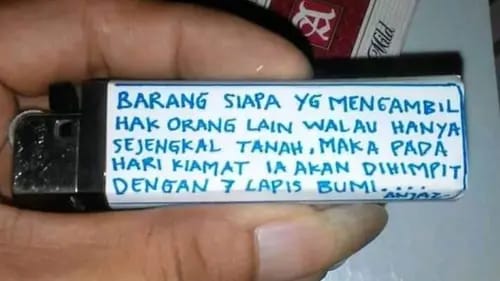 BARANG SIAPA YG MENGAMBIL
HAK ORANG LAIN WALAU HANYA
SEJENGKAL TANAH, MAKA PADA
HARI KIAMAT IA AKAN DIHIMPIT
DENGAN 7 LAPIS BUMI....
A Mild